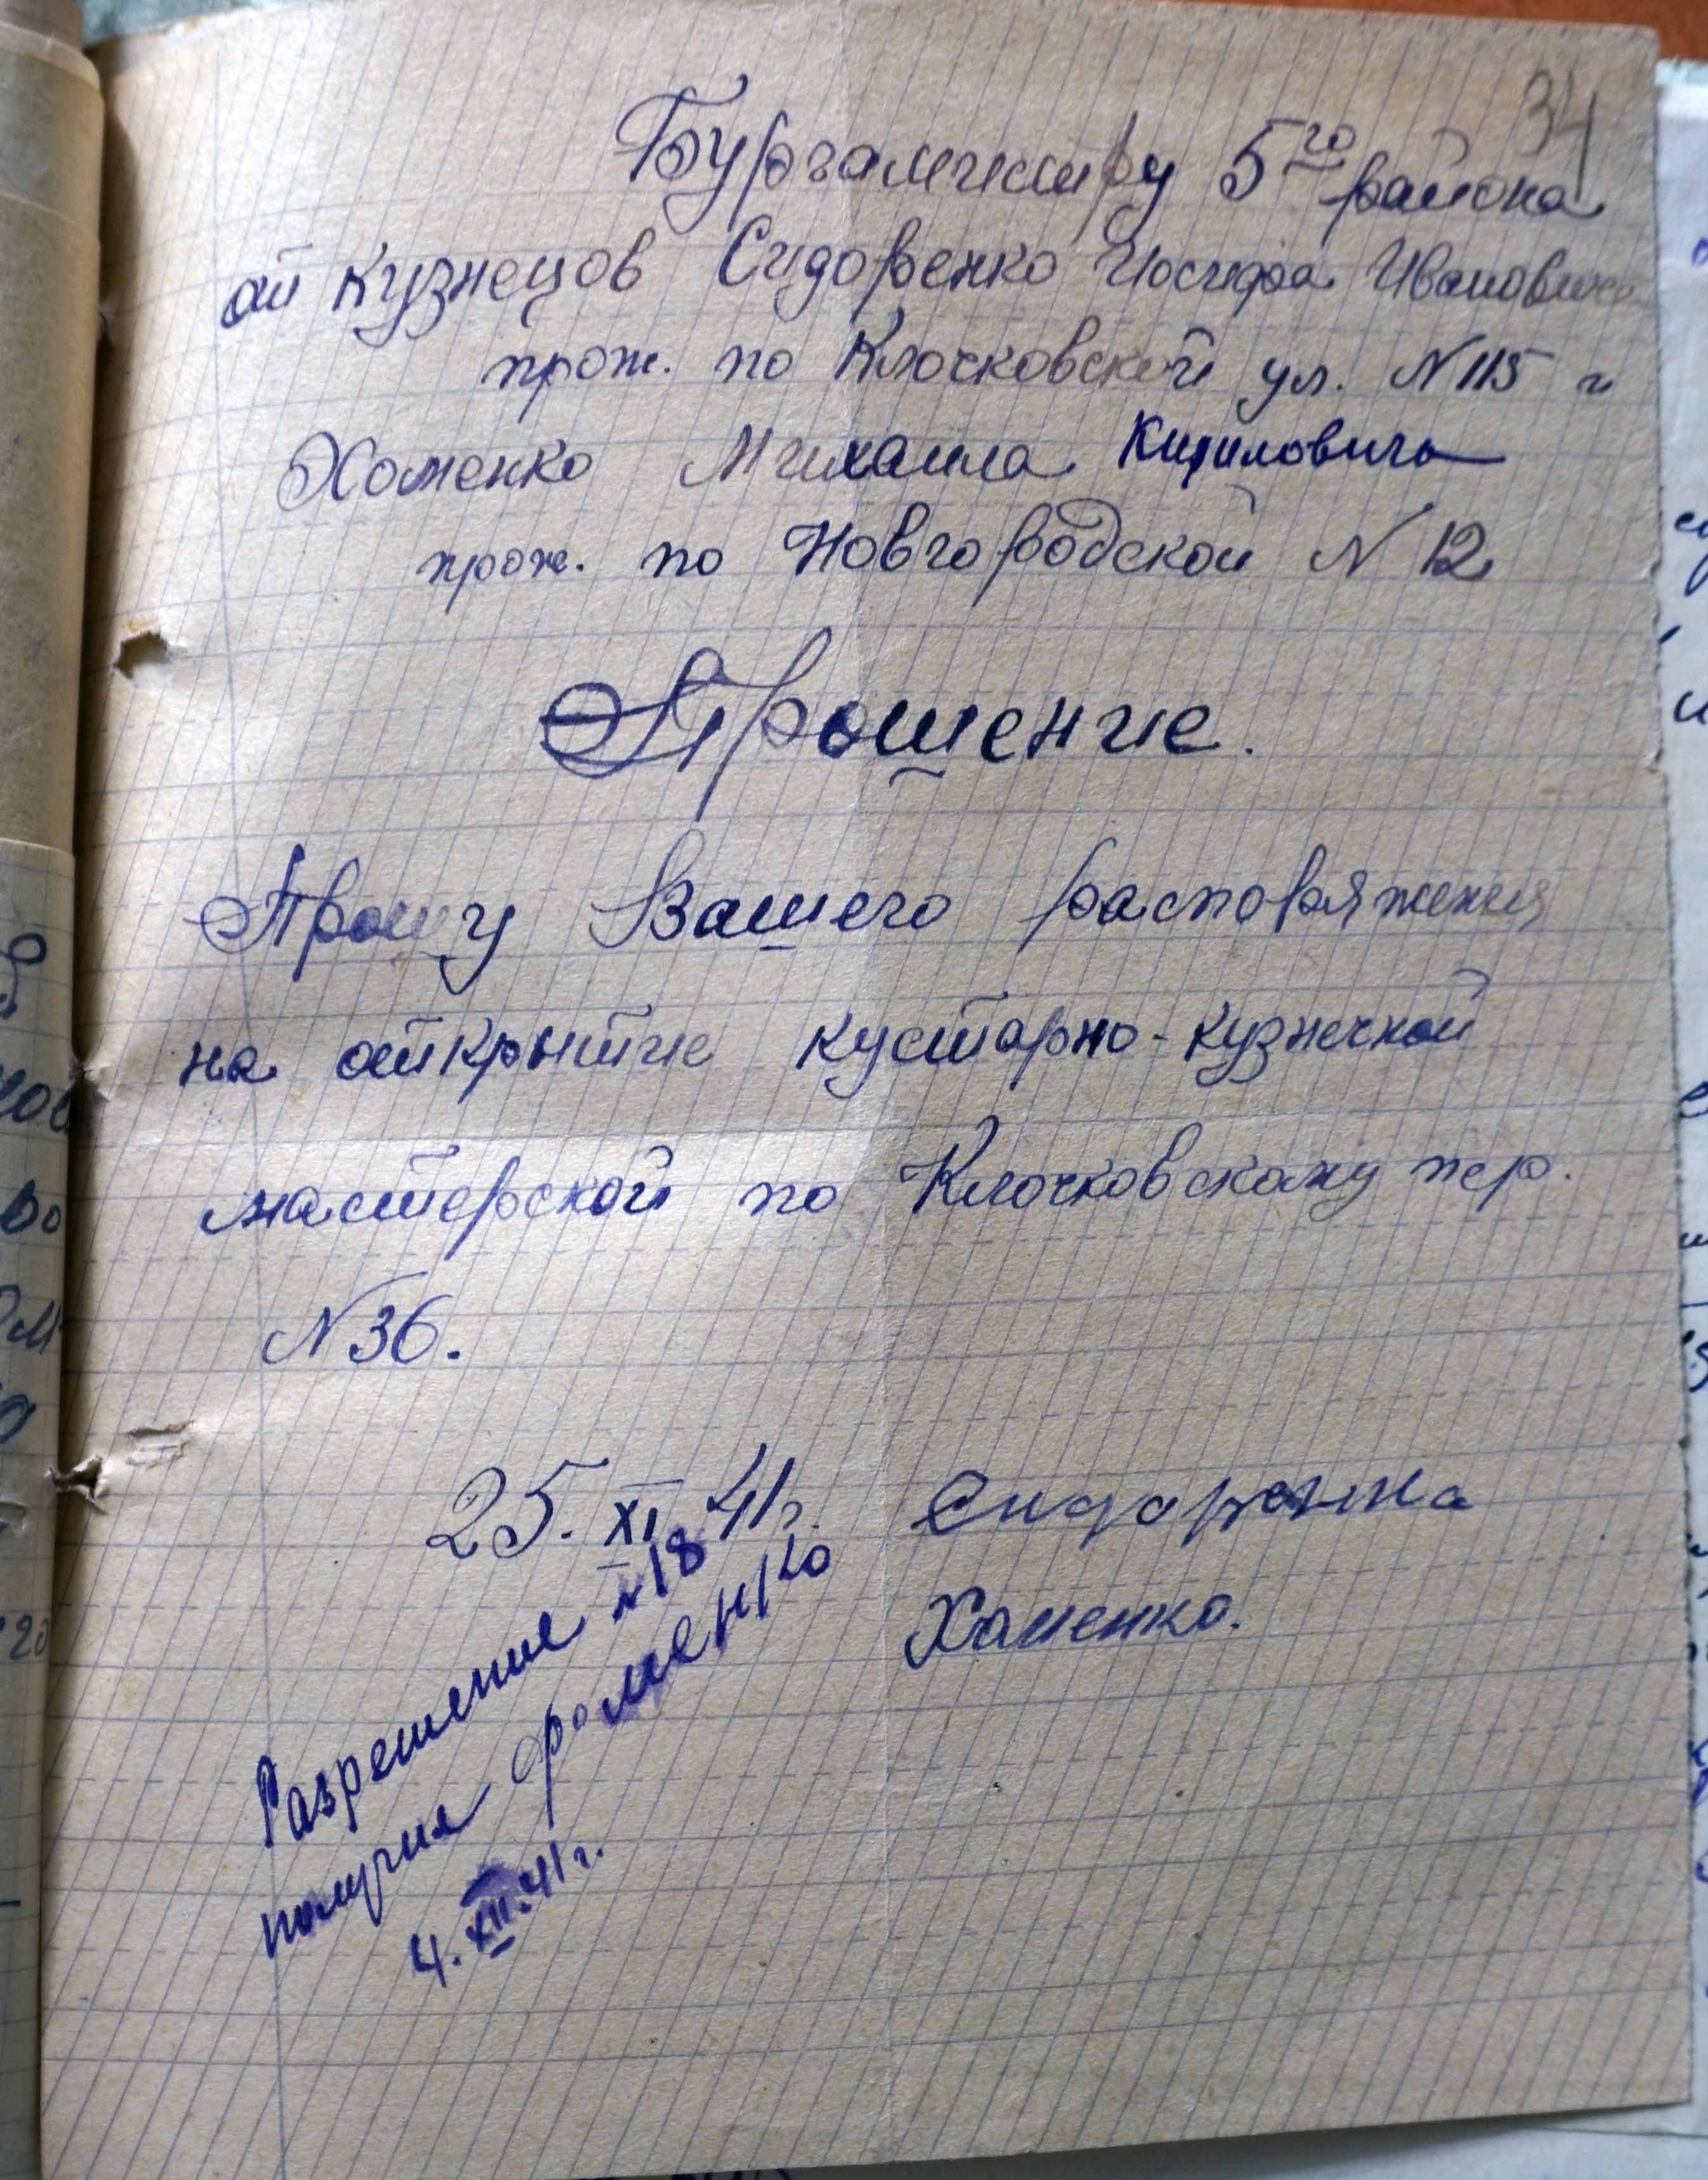 34
Бургамистру 5го района
от Кузнецов Сидоренко Иосифа Ивановича
прож. по Клочковской ул. N 115 и
Хоменко Михаила Кириловича
прож. по Новгородской N 12
Прошение.
Прошу Вашего распоряжения
на открытие кустарно-кузнечной
мастерской по Клочковскому пер.
N 36.
25. XI 41г. Сидоренка
Хоменко.
Разрешение N 18
получил
4. XII. 41 г.